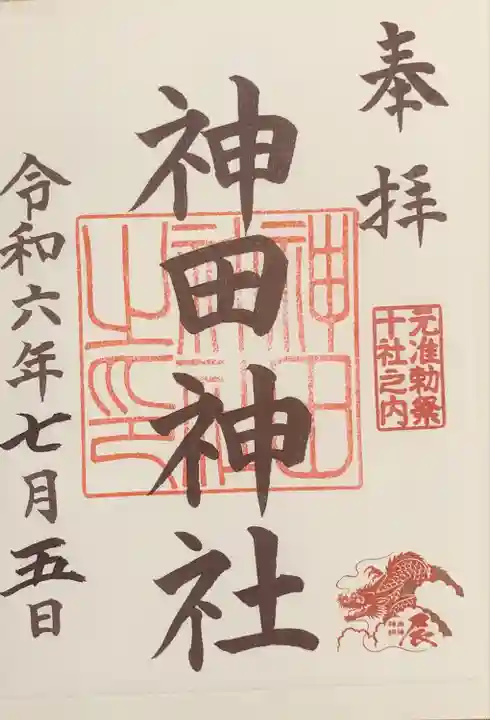 奉拝
元准勅祭
十社之内
辰
神田神社
神田神社之印
令和六年七月五日